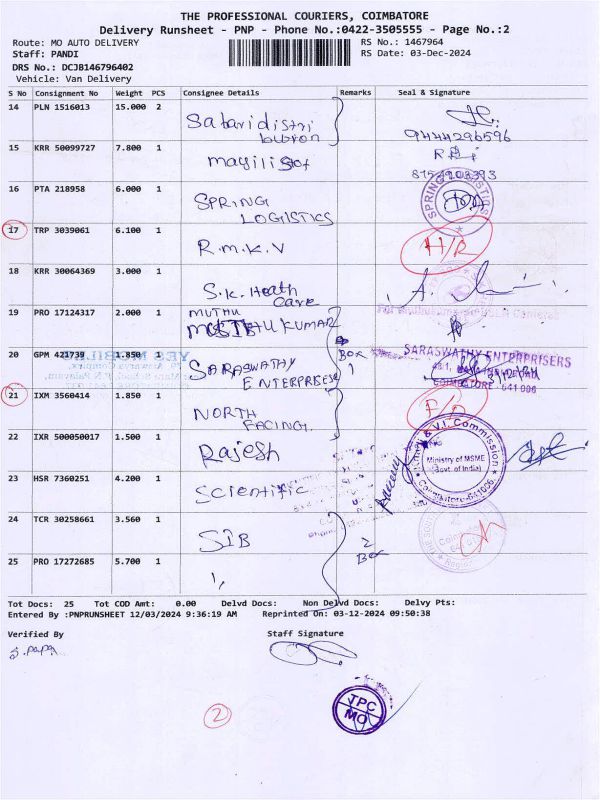 THE PROFESSIONAL COURIERS, COIMBATORE
Delivery Runsheet - PNP - Phone No.:0422-3505555 - Page No.:2
Route: MO AUTO DELIVERY RS No.: 1467964
Staff: PANDI RS Date: 03-Dec-2024
DRS No.: DCJB146796402
Vehicle: Van Delivery
S No Consignment No Weight PCS Consignee Details Remarks Seal & Signature
14 PLN 1516013 15.000 2
Sabari distri
bution
9444296596
15 KRR 50099727 7.800 1
magilistof
16 PTA 218958 6.000 1
SPRING
LOGISTICS
SPRING LOGISTICS
17 TRP 3039061 6.100 1
R.m.K.V
H/R
18 KRR 30064369 3.000 1
S.K. Heath
Care
19 PRO 17124317 2.000 1
MUTHU
KUMAR
20 GPM 427739 1.850 1
SARASWATHY
ENTERPRISES
Box
1
SARASWATHY ENTERPRISERS
COIMBATORE - 641 006
21 IXM 3560414 1.850 1
NORTH
FACING.
22 IXR 500050017 1.500 1
Rajesh
& V.I. Commission
Ministry of MSME
Govt. of India)
Coimbatore-641006.
23 HSR 7360251 4.200 1
Scientific
24 TCR 30258661 3.560 1
SIB
2
Box
25 PRO 17272685 5.700 1
Tot Docs: 25 Tot COD Amt: 0.00 Delvd Docs: Non Delvd Docs: Delvy Pts:
Entered By :PNPRUNSHEET 12/03/2024 9:36:19 AM Reprinted On: 03-12-2024 09:50:38
Verified By Staff Signature
S. Papa
2
TPC
MO